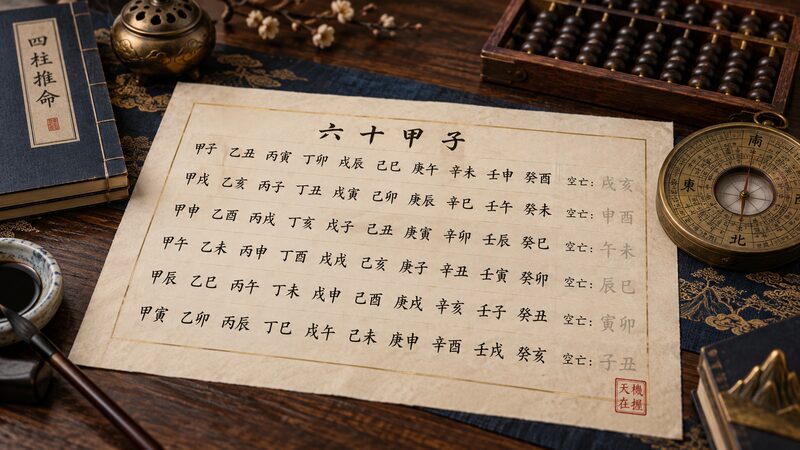 四柱推命
六十甲子
甲子 乙丑 丙寅 丁卯 戊辰 己巳 庚午 辛未 壬申 癸酉 空亡：戌亥
甲戌 乙亥 丙子 丁丑 戊寅 己卯 庚辰 辛巳 壬午 癸未 空亡：申酉
甲申 乙酉 丙戌 丁亥 戊子 己丑 庚寅 辛卯 壬辰 癸巳 空亡：午未
甲午 乙未 丙申 丁酉 戊戌 己亥 庚子 辛丑 壬寅 癸卯 空亡：辰巳
甲辰 乙巳 丙午 丁未 戊申 己酉 庚戌 辛亥 壬子 癸丑 空亡：寅卯
甲寅 乙卯 丙辰 丁巳 戊午 己未 庚申 辛酉 壬戌 癸亥 空亡：子丑
機握
天在
南
東
西
北